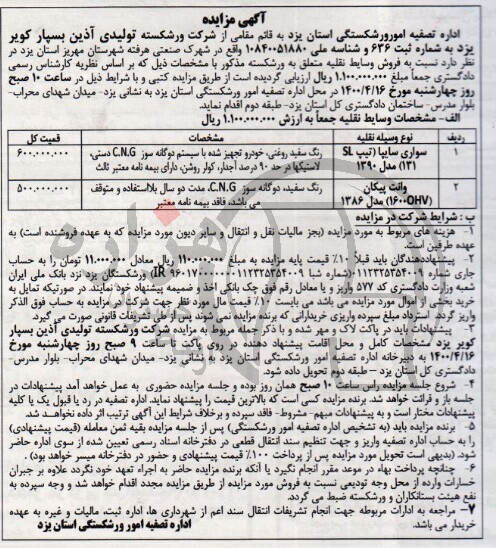 آگهی مزایده
اداره تصفیه امورورشکستگی استان یزد به قائم مقامی از شرکت ورشکسته تولیدی آذین بسپار کویر
یزد به شماره ثبت ۶۳۶ و شناسه ملی ۱۰۸۴۰۰۵۱۸۸۰ واقع در شهرک صنعتی هرفته شهرستان مهریز استان یزد در
نظر دارد نسبت به فروش وسایط نقلیه متعلق به ورشکسته مذکور با مشخصات ذیل که بر اساس نظریه کارشناس رسمی
دادگستری جمعاً مبلغ ۱.۱۰۰.۰۰۰.۰۰۰ ریال ارزیابی گردیده است از طریق مزایده کتبی و با شرایط ذیل در ساعت ۱۰ صبح
روز چهارشنبه مورخ ۱۴۰۰/۴/۱۶ در محل اداره تصفیه امور ورشکستگی استان یزد به نشانی یزد- میدان شهدای محراب-
بلوار مدرس- ساختمان دادگستری کل استان یزد- طبقه دوم اقدام نماید.
الف- مشخصات وسایط نقلیه جمعاً به ارزش ۱.۱۰۰.۰۰۰.۰۰۰ ریال
ردیف نوع وسیله نقلیه مشخصات قمیت کل
۱ سواری سایپا (تیپ SL ۱۳۱) مدل ۱۳۹۰ رنگ سفید روغنی، خودرو تجهیز شده با سیستم دوگانه سوز C.N.G دستی، لاستیکها در حد ۹۰ درصد آجدار، کولر روشن، دارای بیمه نامه معتبر ثالث ۶۰۰.۰۰۰.۰۰۰
۲ وانت پیکان (۱۶۰۰OHV) مدل ۱۳۸۶ رنگ سفید، دوگانه سوز C.N.G، مدت دو سال بلااستفاده و متوقف می باشد، فاقد بیمه نامه معتبر ۵۰۰.۰۰۰.۰۰۰
ب : شرایط شرکت در مزایده
۱- هزینه های مربوط به مورد مزایده (بجز مالیات نقل و انتقال و سایر دیون مورد مزایده که به عهده فروشنده است) به
عهده طرفین است.
۲- پیشنهاددهندگان باید قبلاً ۱۰٪ قیمت پایه مزایده به مبلغ ۱۱۰.۰۰۰.۰۰۰ ریال معادل ۱۱.۰۰۰.۰۰۰ تومان را به حساب
جاری شماره ۰۱۱۲۳۲۵۳۵۴۰۰۹ (شماره شبا IR ۹۶۰۱۷۰۰۰۰۰۰۱۱۲۳۲۵۳۵۴۰۰۹) ورشکستگان یزد نزد بانک ملی ایران
شعبه وزارت دادگستری کد ۵۷۷ واریز و یا معادل رقم فوق چک بانکی اخذ و ضمیمه پیشنهاد خود نمایند. در صورتیکه تمایل به
خرید بخشی از اموال مورد مزایده می باشد می بایست ۱۰٪ قیمت مال مورد نظر جهت شرکت در مزایده به حساب فوق الذکر
واریز گردد. استرداد مبلغ سپرده واریزی خریدارانی که برنده مزایده نمی شوند پس از طی تشریفات قانونی صورت می گیرد.
۳- پیشنهادات باید در پاکت لاک و مهر شده و با ذکر جمله مربوط به مزایده شرکت ورشکسته تولیدی آذین بسپار
کویر یزد مشخصات کامل و محل اقامت پیشنهاد دهنده در روی پاکت تا ساعت ۹ صبح روز چهارشنبه مورخ
۱۴۰۰/۴/۱۶ به دبیرخانه اداره تصفیه امور ورشکستگی استان یزد به نشانی یزد- میدان شهدای محراب- بلوار مدرس-
دادگستری کل استان یزد - طبقه دوم تحویل داده شود.
۴- شروع جلسه مزایده رأس ساعت ۱۰ صبح همان روز بوده و جلسه مزایده حضوری به عمل خواهد آمد پیشنهادات در
جلسه باز و قرائت خواهد شد. برنده مزایده کسی است که بالاترین قیمت را پیشنهاد نماید. اداره تصفیه در رد یا قبول یک یا کلیه
پیشنهادات مختار است و به پیشنهادات مبهم- مشروط- فاقد سپرده و برخلاف شرایط این آگهی ترتیب اثر داده نخواهد شد.
۵- برنده مزایده باید (به تشخیص اداره تصفیه امور ورشکستگی) پس از جلسه مزایده بقیه ثمن معامله (قیمت پیشنهادی)
را به حساب اداره تصفیه واریز و جهت تنظیم سند انتقال قطعی در دفترخانه اسناد رسمی تعیین شده از سوی اداره حاضر
شود. (بدیهی است تحویل مورد مزایده پس از پرداخت ۱۰۰٪ قیمت پیشنهادی و حضور در دفترخانه میسر خواهد بود).
۶- چنانچه پرداخت بهاء در موعد مقرر انجام نگیرد یا آنکه برنده مزایده حاضر به اجراء تعهد خود نگردد علاوه بر جبران
خسارات وارده از محل وجه تودیعی نسبت به فروش مورد مزایده از طریق مزایده مجدد اقدام خواهد شد و وجه سپرده به
نفع هیئت بستانکاران و ورشکسته ضبط می گردد.
۷- مراجعه به ادارات مربوطه جهت انجام تشریفات انتقال سند اعم از شهرداری ها، اداره ثبت، مالیات و غیره به عهده
خریدار می باشد.
اداره تصفیه امور ورشکستگی استان یزد